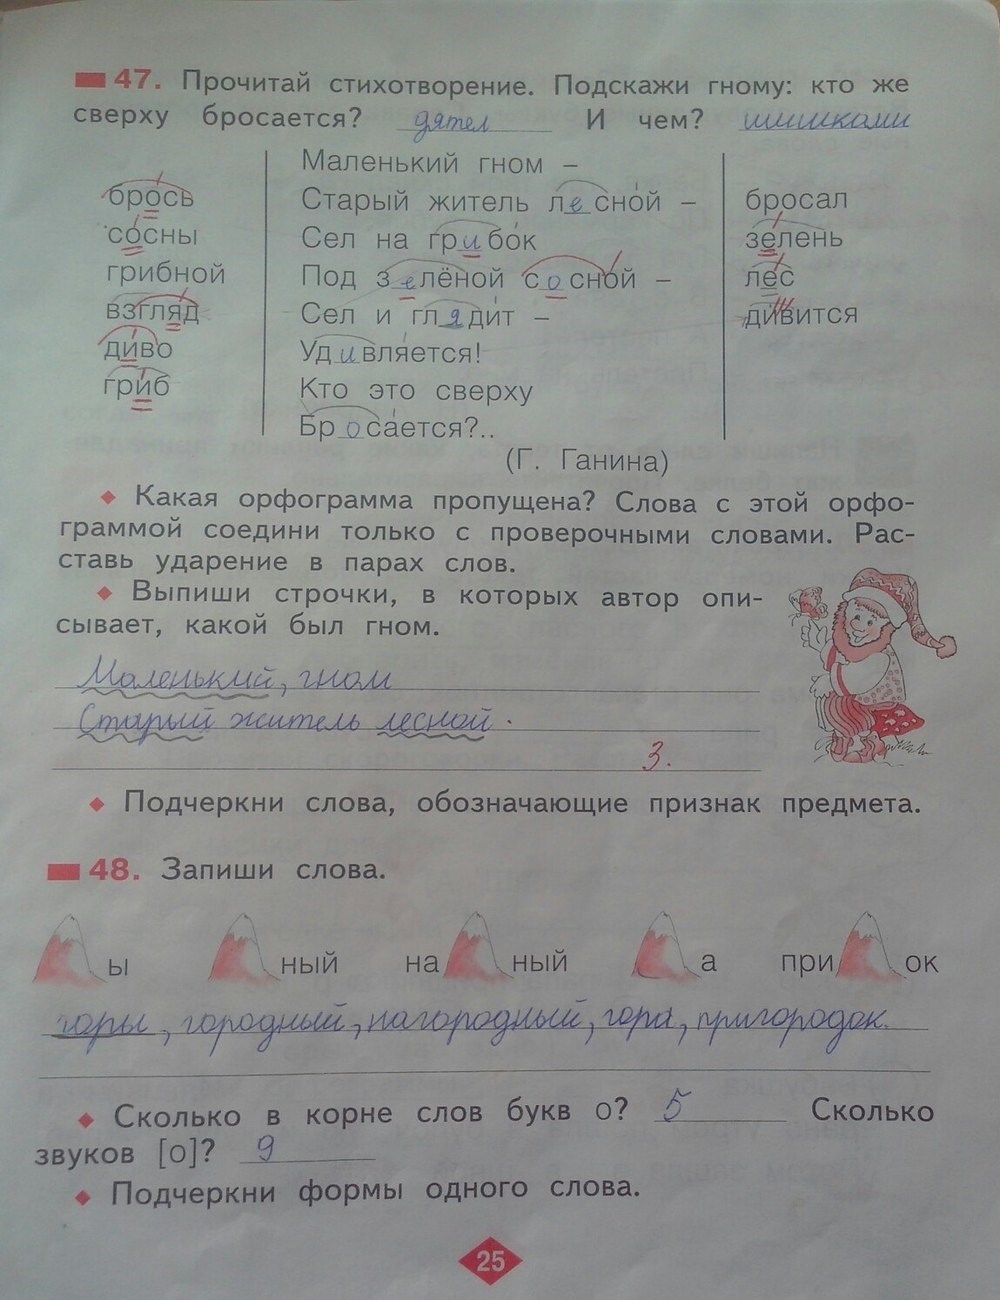 47. Прочитай стихотворение. Подскажи гному: кто же
сверху бросается? дятел И чем? шишками
брось
сосны
грибной
взгляд
диво
гриб
Маленький гном –
Старый житель лесной –
Сел на грибок
Под зелёной сосной –
Сел и глядит –
Удивляется!
Кто это сверху
Бросается?..
(Г. Ганина)
бросал
зелень
лес
дивится
◆ Какая орфограмма пропущена? Слова с этой орфо-
граммой соедини только с проверочными словами. Рас-
ставь ударение в парах слов.
◆ Выпиши строчки, в которых автор опи-
сывает, какой был гном.
Маленький, гном
Старый житель лесной.
3.
◆ Подчеркни слова, обозначающие признак предмета.
48. Запиши слова.
ы ный на ный а при ок
горы, городный, нагородный, гора, пригородок.
◆ Сколько в корне слов букв о? 5 Сколько
звуков [о]? 9
◆ Подчеркни формы одного слова.
25